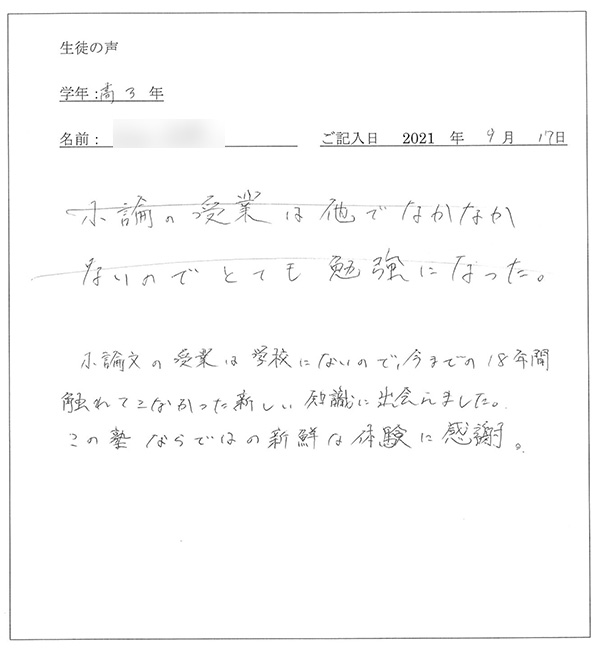 生徒の声
学年：高3年
名前：
ご記入日 2021 年 9月 17日
小論の授業は他でなかなか
ないのでとても勉強になった。
小論文の授業は学校にないので、今までの18年間
触れてこなかった新しい知識に出会えました。
この塾ならではの新鮮な体験に感謝。